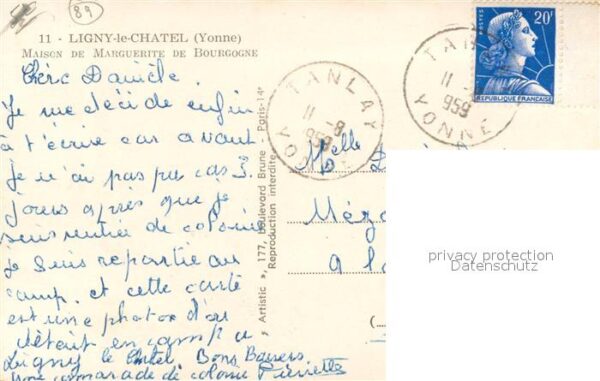 89
11 - LIGNY-le-CHATEL (Yonne)
MAISON DE MARGUERITE DE BOURGOGNE
Chère Danièle
Je me décide enfin
à t'écrire car avant
je n'ai pas pu cas 3
jours après que je
suis rentrée de colonie
je suis repartie au
camp. et cette carte
est une photo d'ou
était en camp a
Ligny le Chatel. Bons Baisers
une camarade de colonie Pierrette
« Artistic », 177, Boulevard Brune - Paris-14e
Reproduction interdite
TANLAY
11 -8
1959
YONNE
TAN
11
1959
YONNE
POSTES
20F
REPUBLIQUE FRANÇAISE
Melle D
Méz
a la
privacy protection
Datenschutz